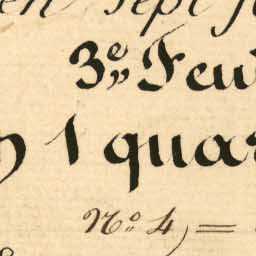 en Sept
3e, Feui
1 quar
No. 4, =